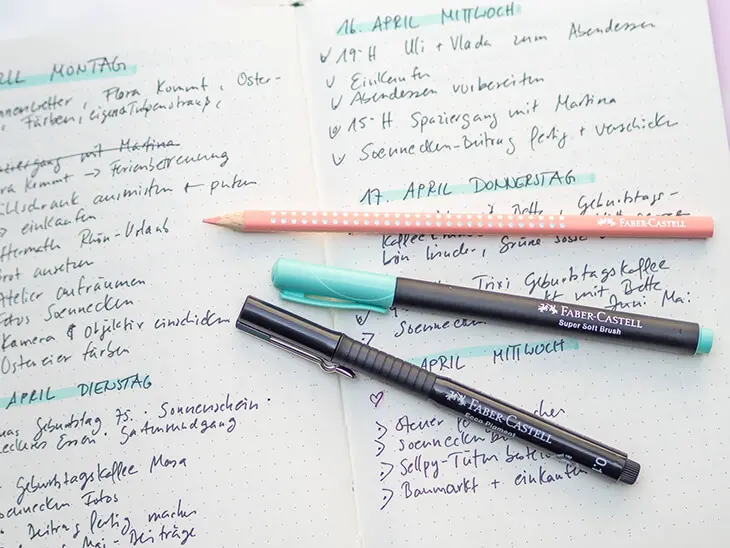 RIL MONTAG
Flora kommt, Oster-
Färben,
Spaziergang mit Martina
kommt → Ferienbetreuung
ausmisten + putzen
→ einkaufen
Aftermath Rhön-Urlaub
Brot ansetzen
Atelier aufräumen
Fotos Soennecken
Kamera & Objektiv einschicken
Ostereier färben
APRIL DIENSTAG
Geburtstag 75. Sonnenschein.
Essen. Gartenrundgang
Geburtstagskaffee Mama
Soennecken Fotos
Beitrag fertig machen
Mai-Beiträge
16. APRIL MITTWOCH
19-H Uli + Vlada zum Abendessen
Einkaufen
Abendessen vorbereiten
15-H Spaziergang mit Martina
Soennecken-Beitrag fertig + verschicken
17. APRIL DONNERSTAG
Bette Geburtstags-
Kaffee
Grüne
Trixi Geburtstagskaffee
mit Bette
Juni Mai
Soennecken
APRIL MITTWOCH
Steuer machen
Soennecken
Sellpy-Tüten
Baumarkt + einkaufen
FABER-CASTELL
FABER-CASTELL
Super Soft Brush
FABER-CASTELL
Ecco Pigment
0.1